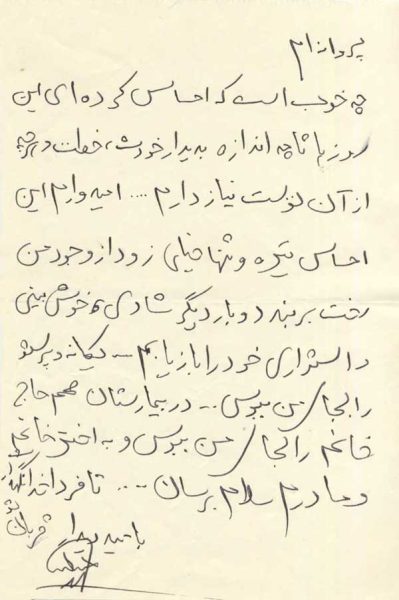 پروانه ام
چه خوب است که احساس کرده ای این
روزها تا چه اندازه به دیدار خودت، خطت و هرچه
از آن توست نیاز دارم .... امیدوارم این
احساس تیره و تنها خیلی زود از وجود من
رخت بربندد و بار دیگر شادی و خوش بینی
و استواری خود را بازیابم ... و پرستو
را بجای من ببوس ... در بیمارستان هم حاج
خانم را بجای من ببوس و به اختر خانم
و مادرم سلام برسان .... تا فردا خدا نگهدار
به امید دیدار
قربان تو